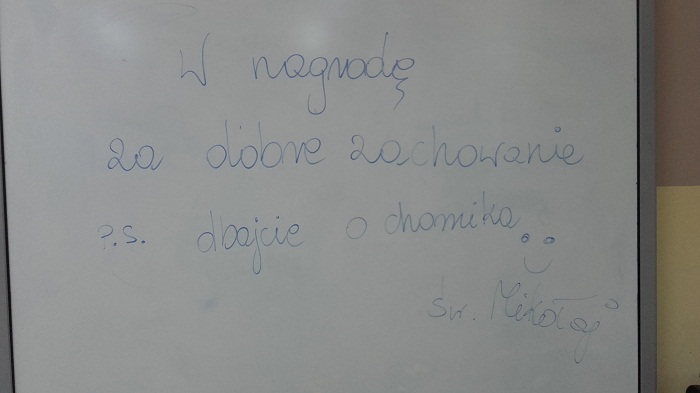 W nagrodę
za dobre zachowanie
P.S. dbajcie o chomika
św. Mikołaj